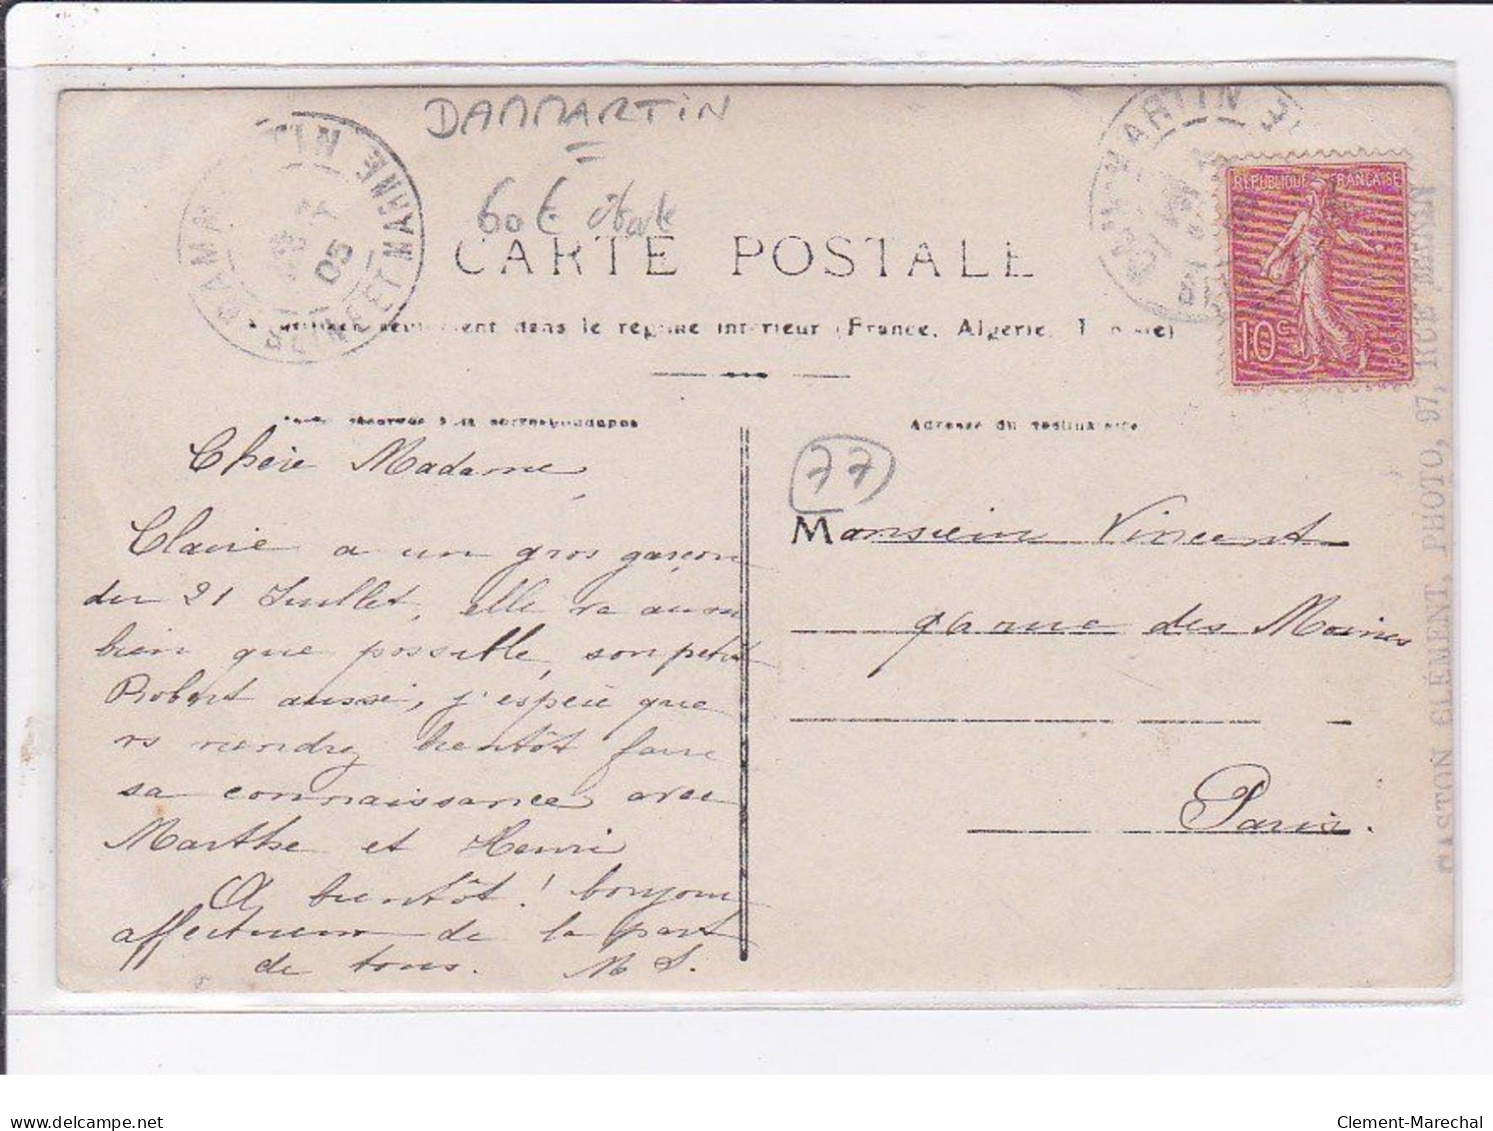 DAMMARTIN
DAMMARTIN
SEINE ET MARNE
05
60 €
CARTE POSTALE
REPUBLIQUE FRANÇAISE
10c
POSTES
A utiliser seulement dans le régime intérieur (France, Algérie, Tunisie)
Adresse du destinataire
77
Chère Madame
Claire a un gros garçon
du 21 Juillet, elle va aussi
bien que possible, son petit
Robert aussi, j'espère que
vs viendrez bientôt faire
sa connaissance avec
Marthe et Henri
A bientôt ! bonjour
affectueux de la part
de tous. M S.
Monsieur Vincent
rue des Moines
Paris.
GASTON CLÉMENT, PHOTO, 97, RUE
www.delcampe.net
Clement-Marechal